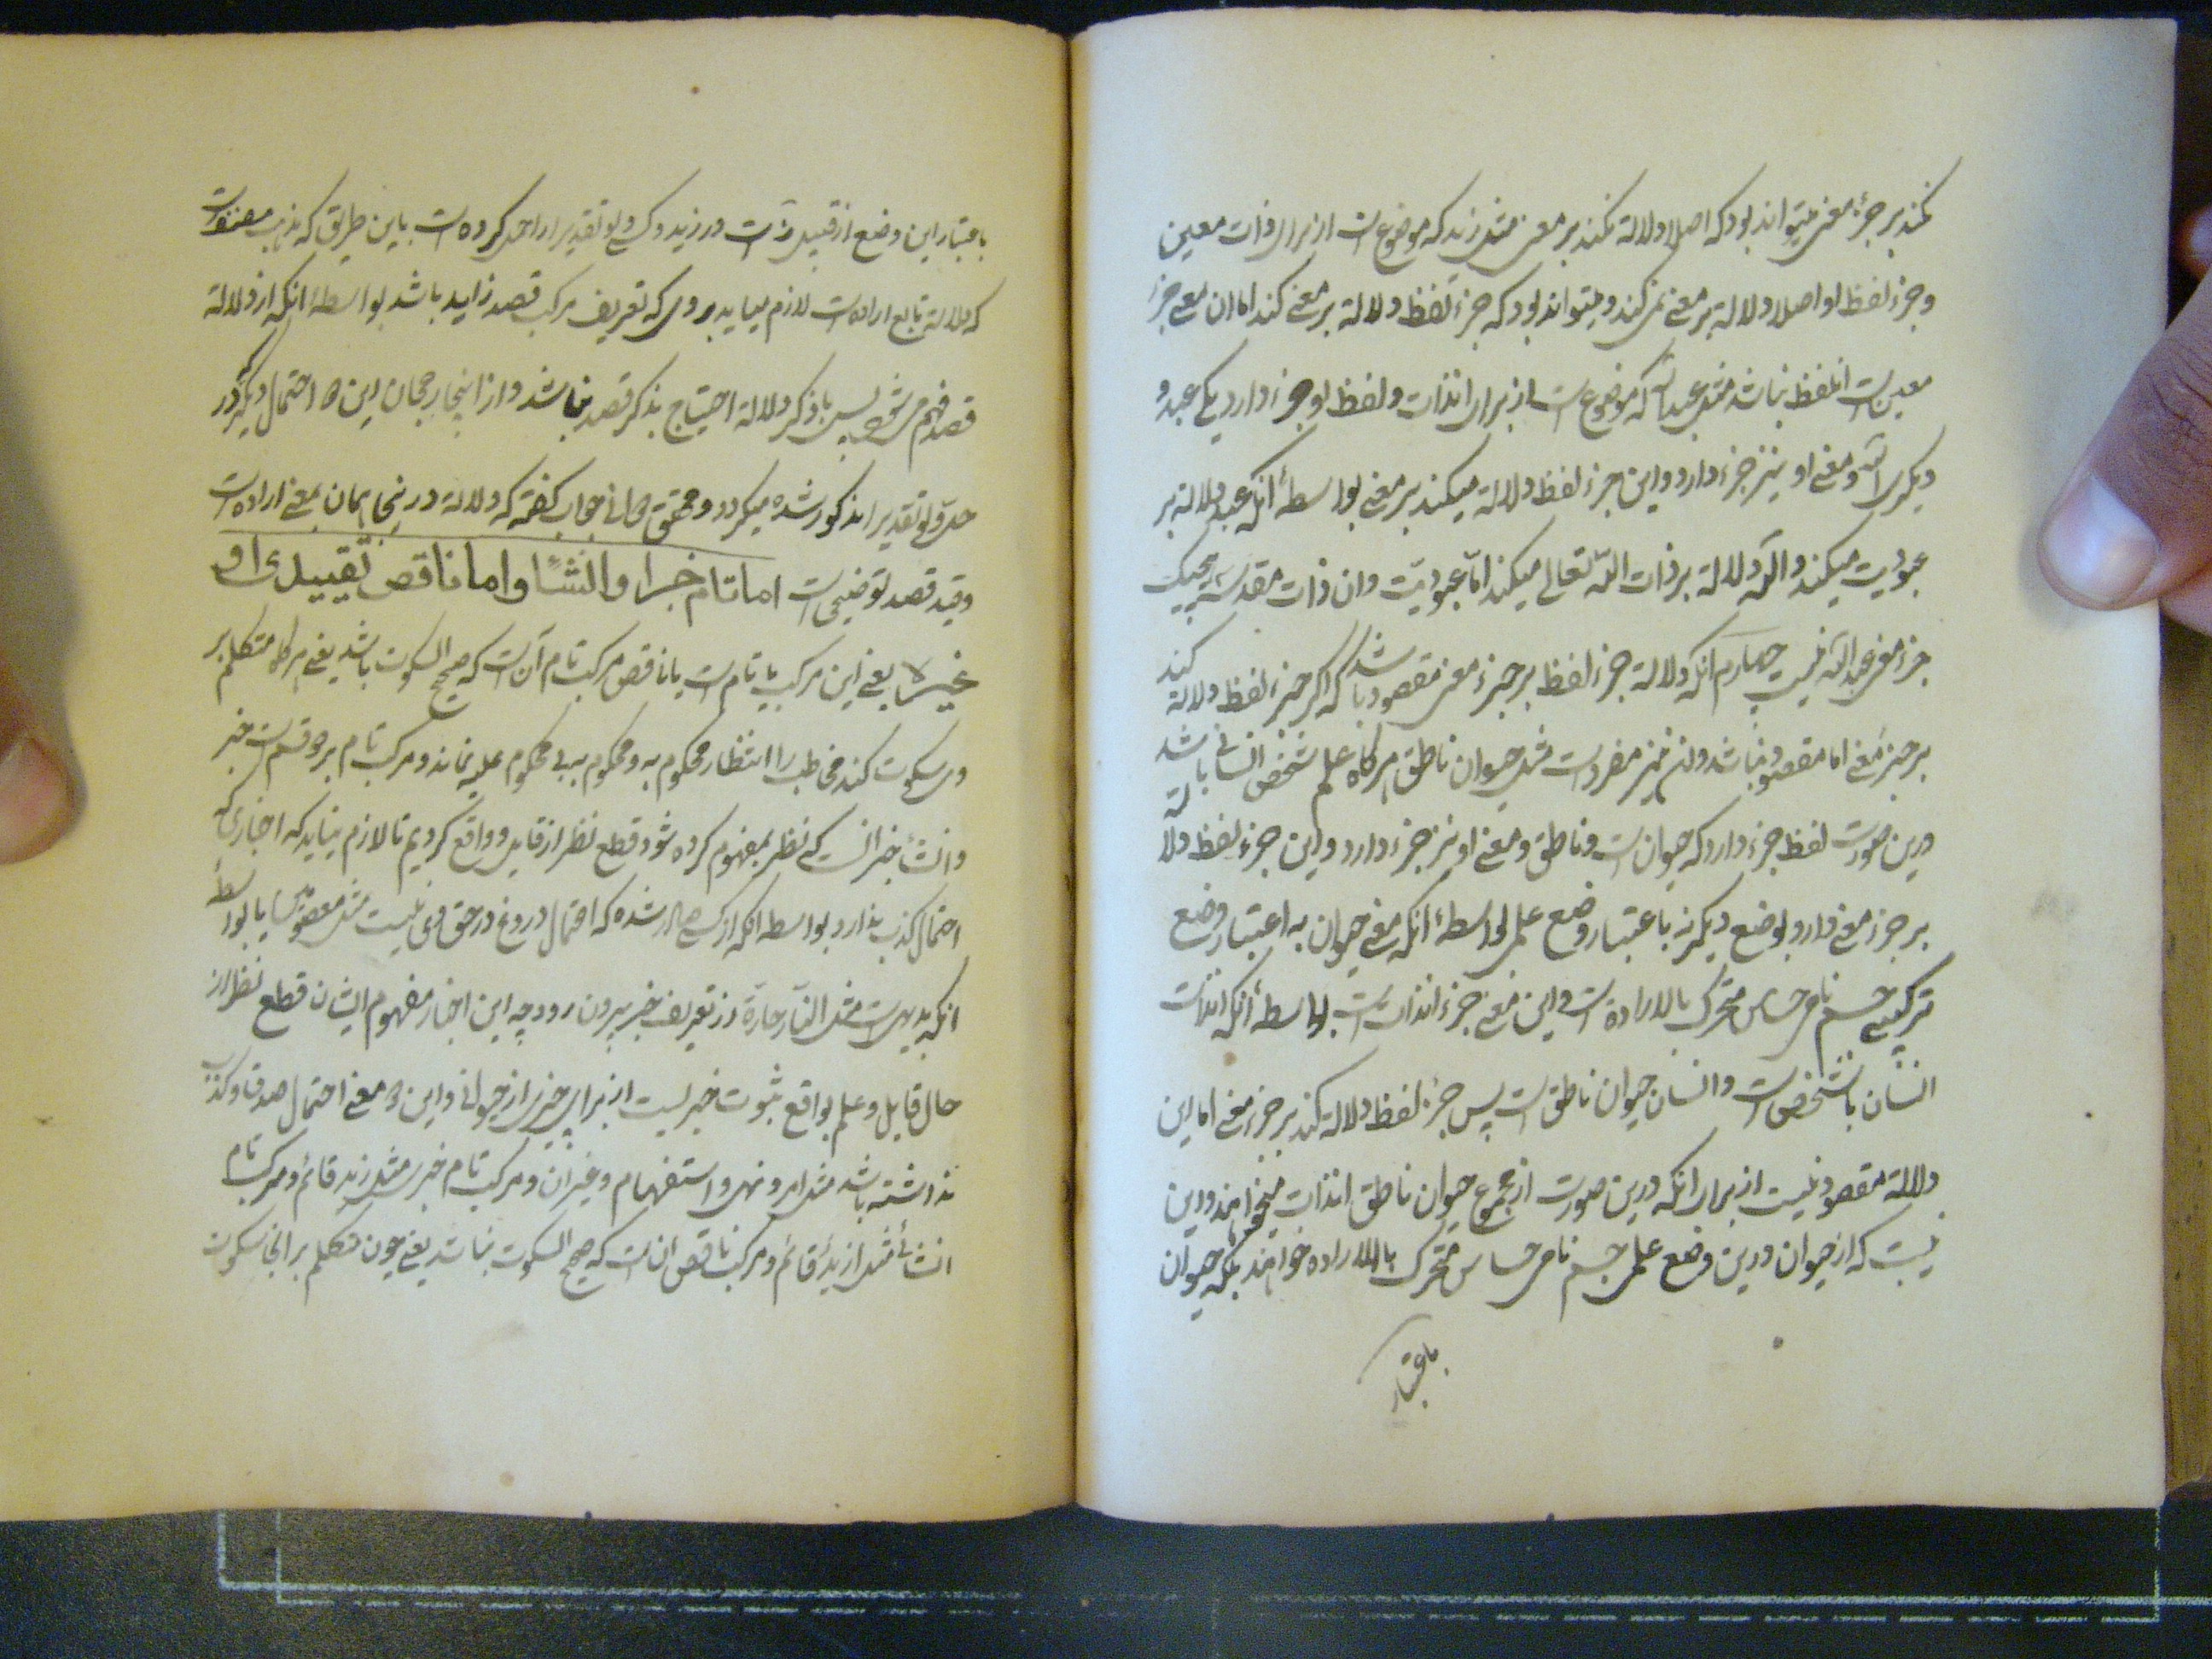 نکند بر جزء معنی میتواند بود که اصلا دلالة نکند بر معنی مثل زید که موضوع است از برای ذات معین
و جزء لفظ او اصلا دلالة بر معنے نمی کند و میتواند بود که جزء لفظ دلالة بر معنے کند اما ان معنے جزء
معین است انلفظ نباشد مثل عبدالله که موضوع است از برای انذات و لفظ او جزء دارد یکے عبد و
دیگری الله و معنے او نیز جزء دارد و این جزء لفظ دلالة میکند بر معنے بواسطهٔ انکه عبد دلالة بر
عبودیت میکند و الله دلالة بر ذات الله تعالی میکند اما عبودیت و ان ذات مقدسه هیچیک
جزء معنی عبدالله نیست چهارم انکه دلالة جزء لفظ بر جزء معنی مقصود باشد که اگر جزء لفظ دلالة کند
بر جزء معنے اما مقصود نباشد ان نیز مفرد است مثل حیوان ناطق هرگاه علم شخص انسانی باشد
درین صورت لفظ جزء دارد که حیوان است و ناطق و معنے او نیز جزء دارد و این جزء لفظ دلالة
بر جزء معنے دارد بوضع دیگر نه باعتبار وضع علمی بواسطهٔ انکه معنے حیوان به اعتبار وضع
ترکیبے جسم نامی حساس متحرک بالاراده است و این معنے جزء انذات است بواسطهٔ انکه انذات
انسان با تشخص است و انسان حیوان ناطق است پس جزء لفظ دلالة کند بر جزء معنے اما این
دلالة مقصود نیست از برای انکه درین صورت از مجموع حیوان ناطق انذات میخواهند و این
نیست که از حیوان درین وضع علمی جسم نامی حساس متحرک بالاراده خواهند بلکه حیوان
باعتبار
باعتبار این وضع از قبیل زآ است در زید و کسے لو تقدیرا را حمل کرده است باین طریق که مذهب مصنف است
که دلالة تابع اراده است لازم میاید بر وی که تعریف مرکب قصد زاید باشد بواسطهٔ انکه از دلالة
قصد فهم می شود پس با ذکر دلالة احتیاج بذکر قصد نباشد و از اینجا رجحان این احتمال دیگر که در
حل و لو تقدیرا مذکور شده میگردد و محقق دوانی جواب گفته که دلالة در اینجا همان بمعنے اراده است
و قید قصد توضیحی است اما تام خبرا و انشاءً و اما ناقص تقییدی او
غیره یعنے این مرکب یا تام است یا ناقص مرکب تام آن است که صحیح السکوت باشد یعنے هرگاه متکلم بر
وی سکوت کند مخاطب را انتظار محکوم به و محکوم به بی محکوم علیه نماند و مرکب تام بر دو قسم است خبر
و انشاء خبر انست که نظر بمفهوم کرده شود قطع نظر از قایل و واقع کردیم تا لازم نیاید که اخباری که
احتمال کذب ندارد بواسطه انکه از کسے صادر شده که احتمال دروغ در حق وی نیست مثل معصومین یا بواسطهٔ
انکه بدیهی است مثل النار حارة از تعریف خبر بیرون رود چه این اخبار مفهوم ایشان قطع نظر از
حال قایل و علم بواقع ثبوت خبریست از برای چیزی از جوانی و این معنے احتمال صدق و کذب
نداشته باشد مثل امر و نهی و استفهام و غیر ان و مرکب تام خبری مثل زید قائم و مرکب تام
انشائے مثل ازید قائم و مرکب ناقص ان است که صحیح السکوت نباشد یعنے چون متکلم بر انجا سکوت